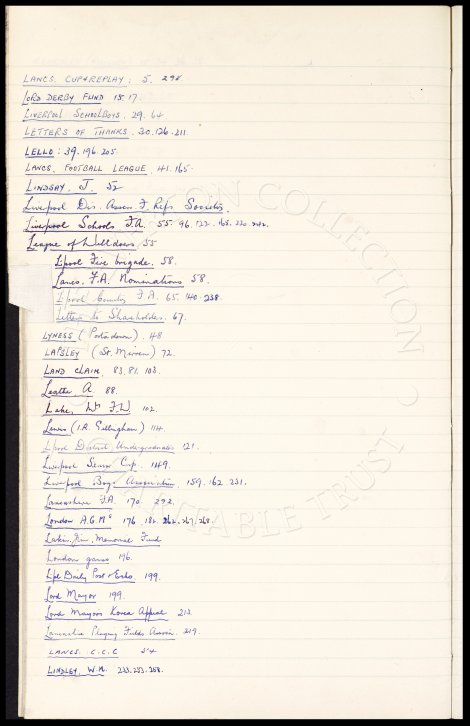 LANCS. CUP & REPLAY; 5. 298
LORD DERBY FUND 15.17.
LIVERPOOL SCHOOLBOYS. 29. 64
LETTERS OF THANKS. 30. 126. 211.
LELLO: 39. 196. 205.
LANCS. FOOTBALL LEAGUE 41. 165.
LINDSAY, J. 52
Liverpool Des. Assoc. F. Refs Societies.
Liverpool Schools F.A. 55. 96. 122.
League of Welldoers. 55
L'pool Fire brigade. 58.
Lancs. F.A. Nominations 58.
L'pool County F.A. 65. 140. 238.
Letters to Shareholders. 67.
LYNESS (Portadown). 48
LAPSLEY (St. Mirren) 72.
LAND CLAIM. 83. 81. 103.
Leathe A. 88.
Lake, W. F.W. 102.
Lewis (I.R. Gillingham) 114.
Lpool District Undergraduates 121.
Liverpool Senior Cup. 149.
Liverpool Boys Association 159. 162. 231.
Lancashire F.A. 170. 272.
London A.G.Ms 176. 182. 262. 267. 268.
Lakin, Jim, Memorial Fund
London games 196.
Lpl Daily Post & Echo 199.
Lord Mayor 199.
Lord Mayors Korea Appeal 213.
Lancashire Playing Fields Assocn. 219.
LANCS. C.C.C 54
LINDLEY, W.M. 233. 253. 258.
COLLECTION
CHARITABLE TRUST